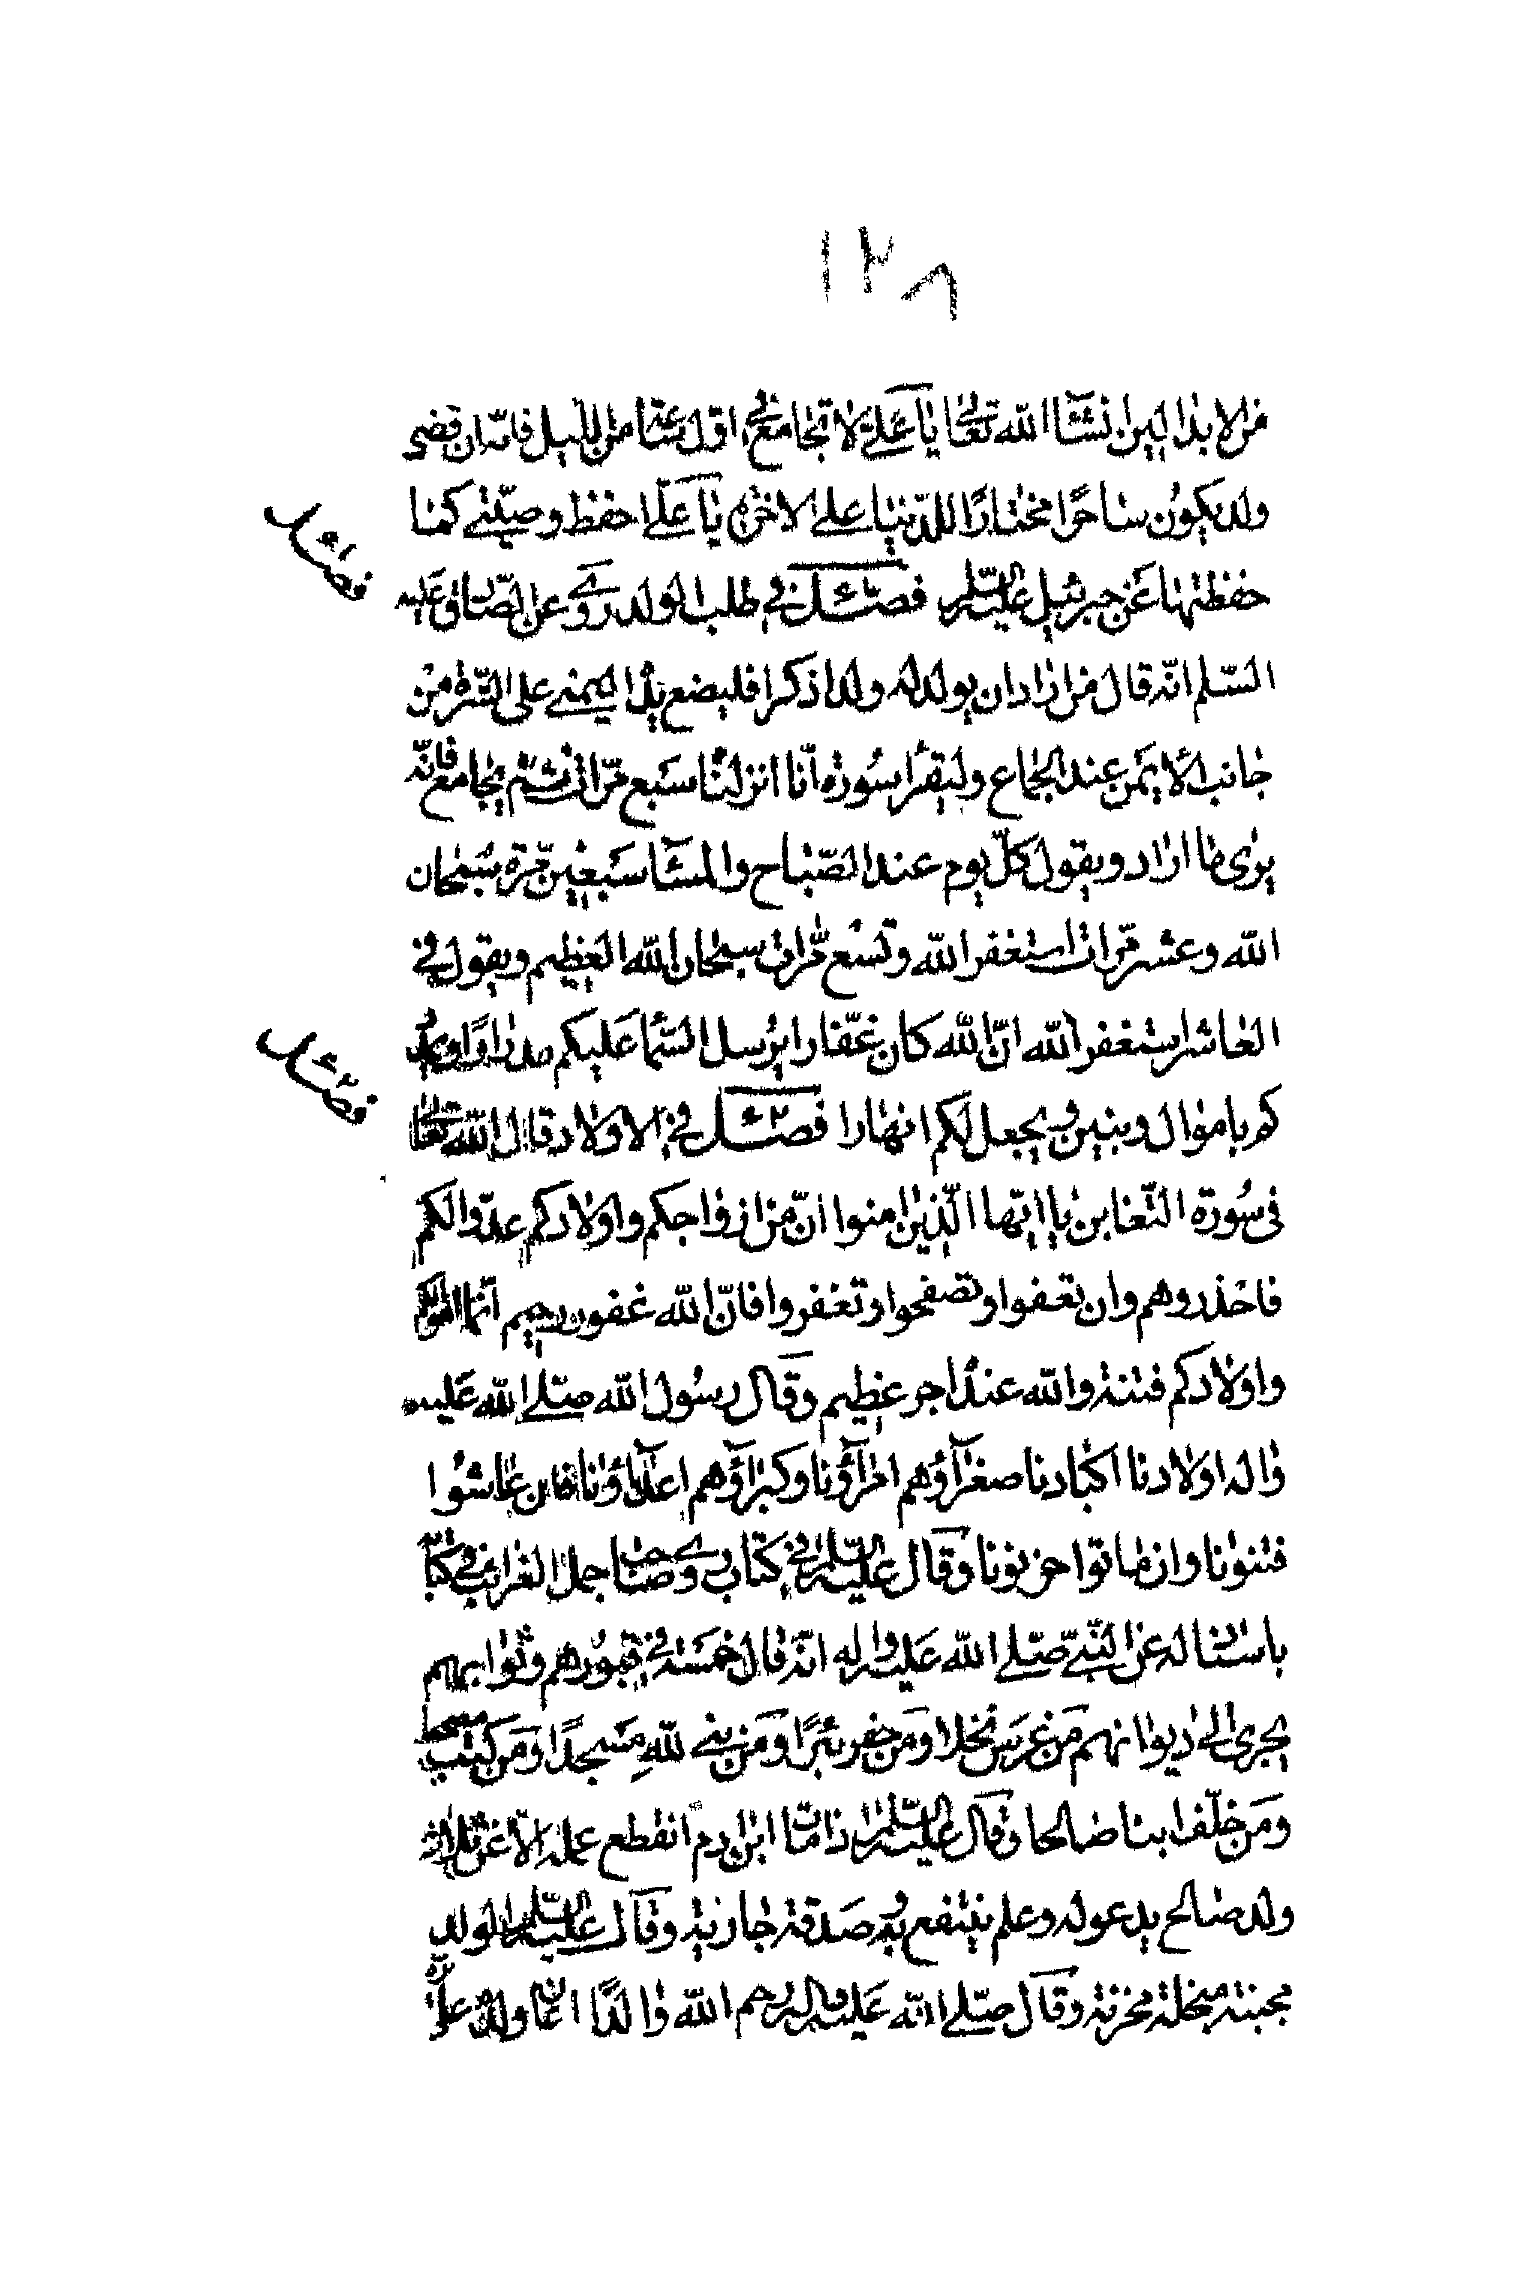 ١٢٨
من الابدالين انشاالله تعالى يا على لا تجامع في اول ساعة من الليل فانه ان قضى
ولد يكون ساحرا مختارا للدنيا على الاخرة يا على احفظ وصيتى كما
فصل
حفظتها عن جبرئيل عليه السلم فصل في طلب الولد روى عن الصادق عليه
السلم انه قال من اراد ان يولد له ولدا ذكرا فليضع يده اليمنى على السرة من
جانب الايمن عند الجماع وليقرأ سورة انا انزلناه سبع مرات ثم يجامع فانه
يرى ما اراد ويقول كل يوم عند الصباح والمسآ سبعين مرة سبحان
الله وعشر مرات استغفر الله وتسع مرات سبحان الله العظيم ويقول في
العاشر استغفر الله ان الله كان غفارا يرسل السماء عليكم مدرارا ويمدد
فصل
كم باموال وبنين ويجعل لكم انهارا فصل في الاولاد قال الله تعالى
فى سورة التغابن يا ايها الذين امنوا ان من ازواجكم واولادكم عدوا لكم
فاحذروهم وان تعفوا وتصفحوا وتغفروا فان الله غفور رحيم انما اموالكم
واولادكم فتنة والله عنده اجر عظيم وقال رسول الله صلى الله عليه
واله اولادنا اكبادنا صغرآؤهم امرآؤنا وكبرآؤهم اعدآؤنا فان عاشوا
فتنونا وان ماتوا حزنونا وقال عليه السلم في كتاب روى صاحب جمل الغرائب في كتابه
باسناد له عن النبي صلى الله عليه واله انه قال خمسة في قبورهم وثوابهم
يجرى الى ديوانهم من غرس نخلا ومن حفر بئرا ومن بنى لله مسجدا ومن كتب مصحفا
ومن خلف ابنا صالحا وقال عليه السلم اذا مات ابن ادم انقطع عمله الا عن ثلاث
ولد صالح يدعو له وعلم ينتفع به صدقة جارية وقال عليه السلم الولد
مجبنة مبخلة محزنة وقال صلى الله عليه واله رحم الله والدا اعان ولده على بره